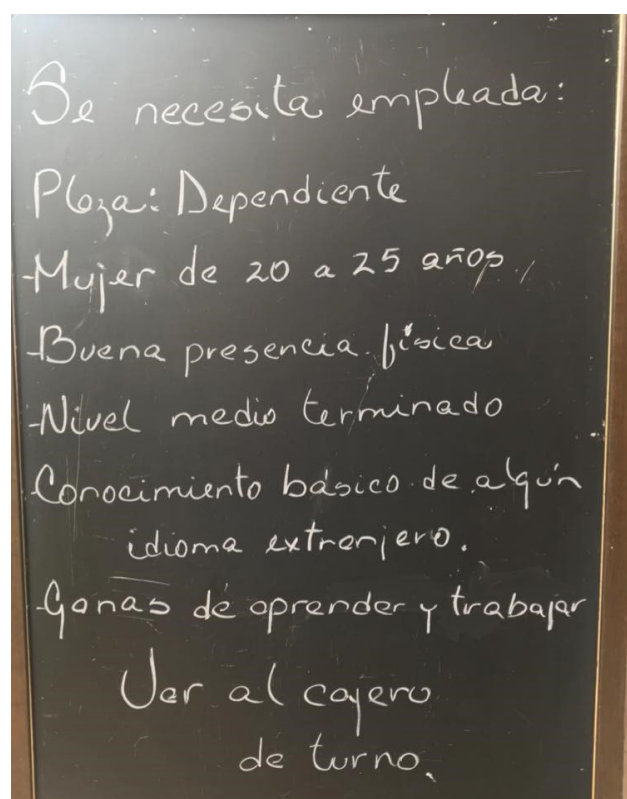 Se necesita empleada:
Plaza: Dependiente
-Mujer de 20 a 25 años
-Buena presencia física
-Nivel medio terminado
-Conocimiento básico de algún
idioma extranjero.
-Ganas de aprender y trabajar
Ver al cajero
de turno.